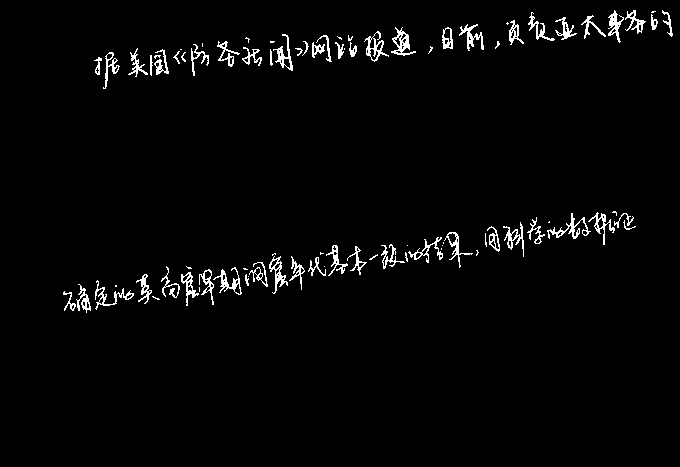 据美国《防务新闻》网站报道，日前，负责亚太事务的
确定的莫高窟早期洞窟年代基本一致的结果，用科学的数据证